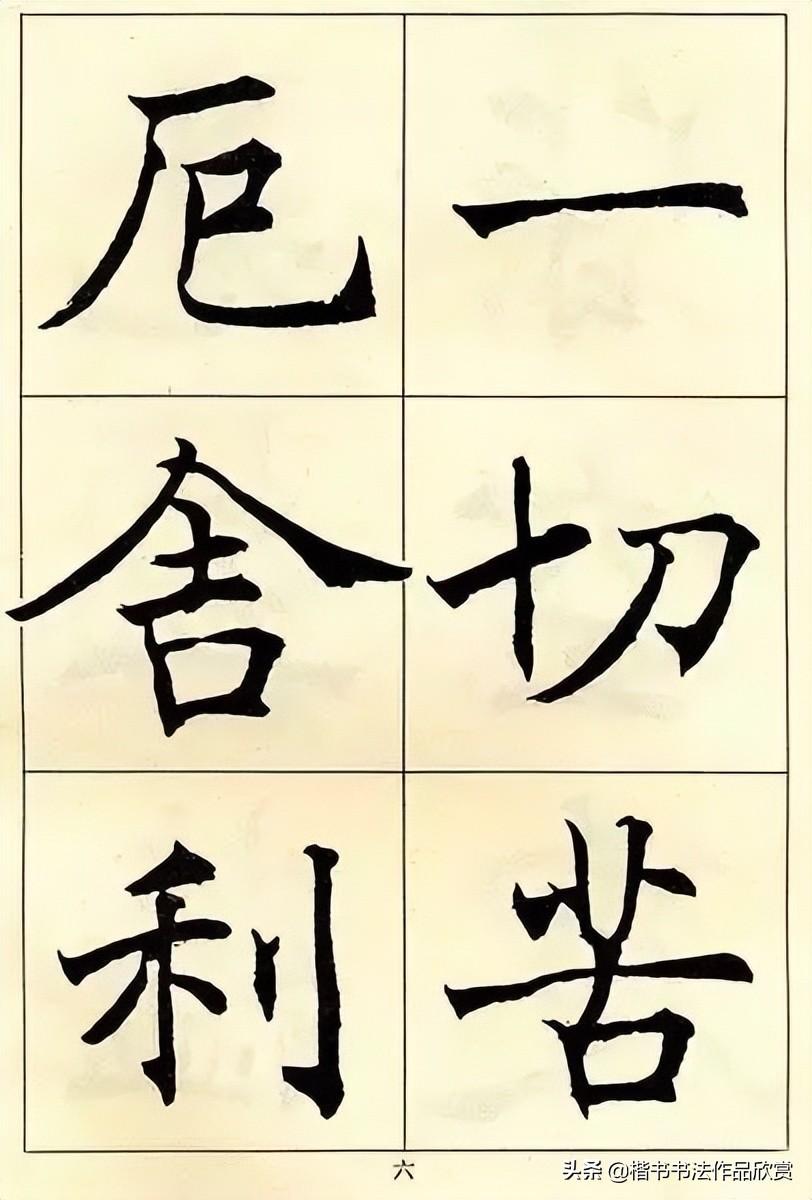 一切苦
厄舍利
六
头条 @楷书书法作品欣赏